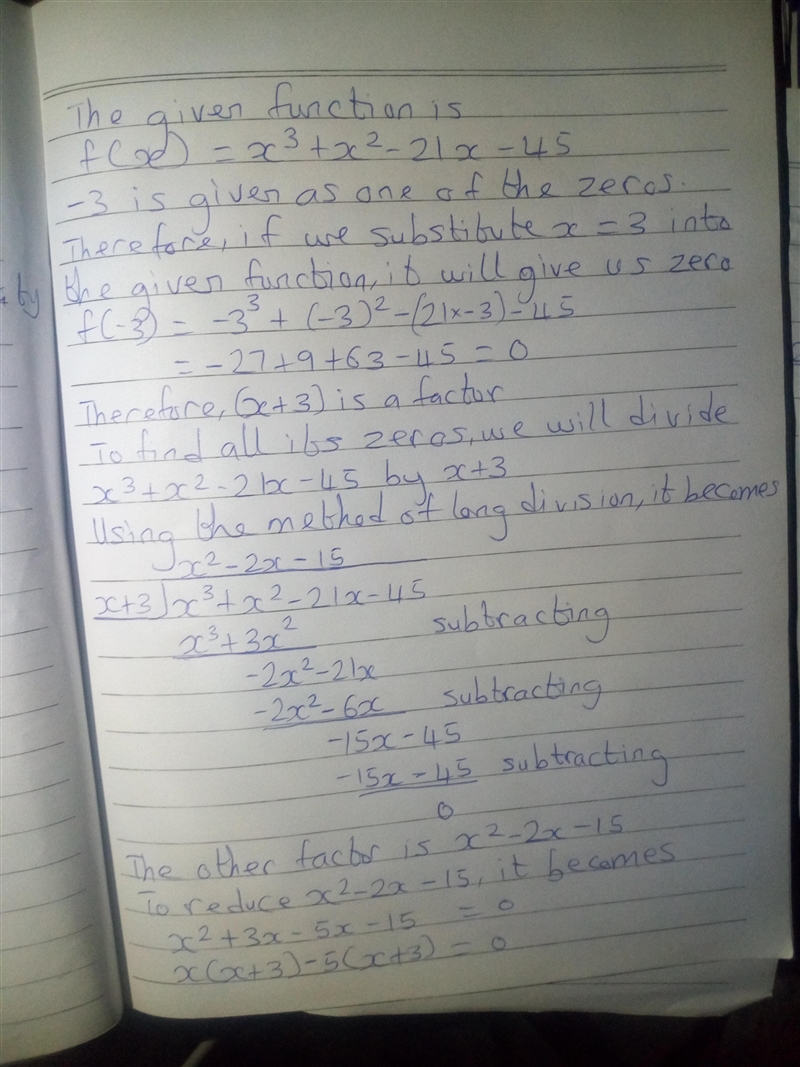 The given function is
f(x) = x³ + x² - 21x - 45
-3 is given as one of the zeros.
Therefore, if we substitute x = 3 into
the given function, it will give us zero
f(-3) = -3³ + (-3)² - (21x-3) - 45
= -27 + 9 + 63 - 45 = 0
Therefore, (x+3) is a factor
To find all its zeros, we will divide
x³ + x² - 21x - 45 by x+3
Using the method of long division, it becomes
x² - 2x - 15
x+3)x³ + x² - 21x - 45
x³ + 3x² subtracting
-2x² - 21x
-2x² - 6x subtracting
-15x - 45
-15x - 45 subtracting
0
The other factor is x² - 2x - 15
To reduce x² - 2x - 15, it becomes
x² + 3x - 5x - 15 = 0
x(x+3) - 5(x+3) = 0
by